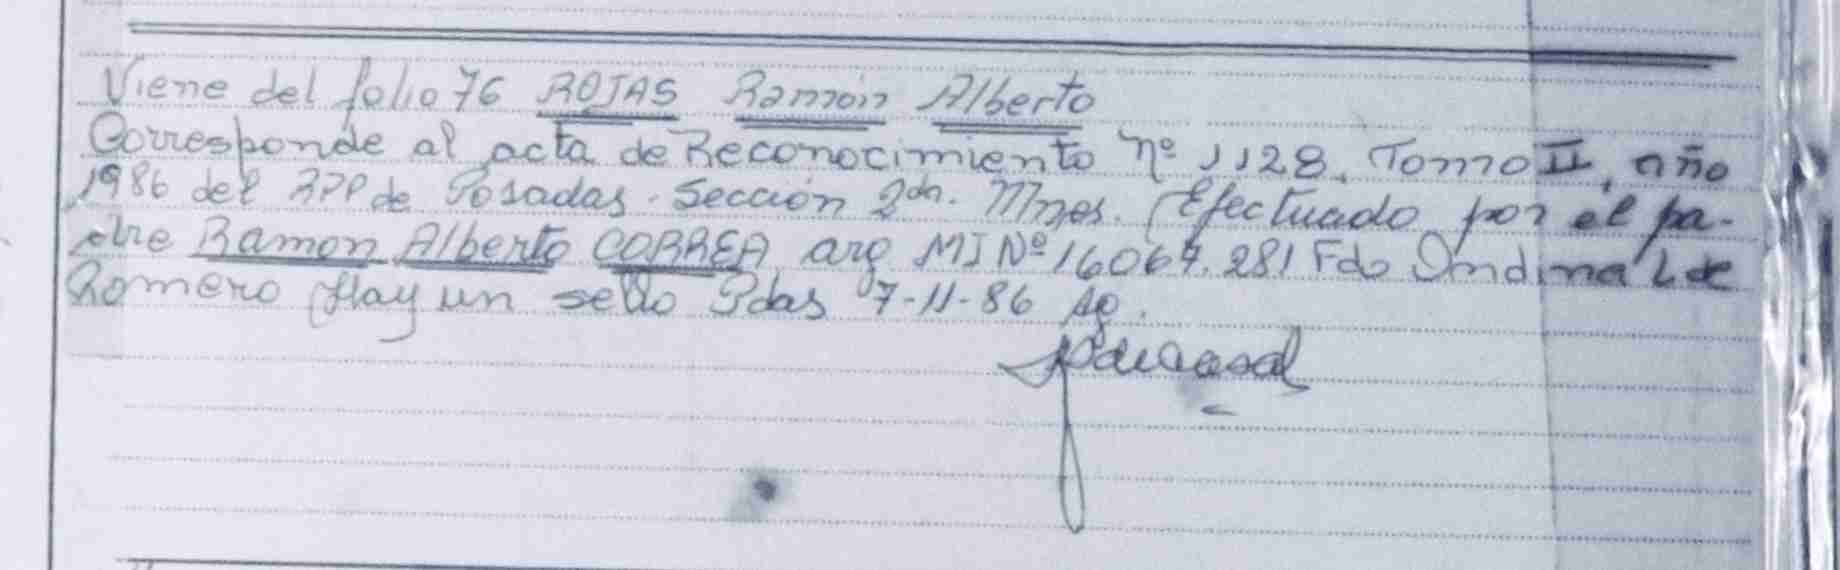 Viene del folio 76 ROJAS Ramón Alberto
Corresponde al acta de Reconocimiento nº 1128, Tomo II, año
1986 del RPP de Posadas. Sección 2da. Mnes. Efectuado por el pa-
dre Ramon Alberto CORREA arg MI Nº 16067.281 Fdo Ondina L de
Romero Hay un sello Pdas 7-11-86